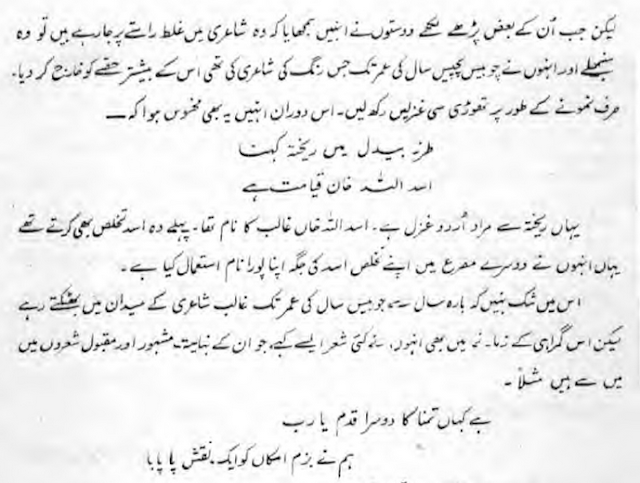 لیکن جب اُن کے بعض پڑھے لکھے دوستوں نے انہیں سمجھایا کہ وہ شاعری میں غلط راستے پر جا رہے ہیں تو وہ
سنبھلے اور انہوں نے چوبیس پچیس سال کی عمر تک جس رنگ کی شاعری کی تھی اس کے بیشتر حصے کو خارج کر دیا۔
صرف نمونے کے طور پر تھوڑی سی غزلیں رکھ لیں۔ اس دوران انہیں یہ بھی محسوس ہوا کہ —
طرز بیدل میں ریختہ کہنا
اسد اللہ خان قیامت ہے
یہاں ریختہ سے مراد اُردو غزل ہے۔ اسد اللہ خاں غالب کا نام تھا۔ پہلے وہ اسد تخلص بھی کرتے تھے
یہاں انہوں نے دوسرے مصرع میں اپنے تخلص اسد کی جگہ اپنا پورا نام استعمال کیا ہے۔
اس میں شک نہیں کہ بارہ سال سے چوبیس سال کی عمر تک غالب شاعری کے میدان میں بھٹکتے رہے
لیکن اس گمراہی کے زمانے میں بھی انہوں نے کئی شعر ایسے کہے، جو ان کے نہایت مشہور اور مقبول شعروں میں
میں سے ہیں مثلاً۔
ہے کہاں تمنا کا دوسرا قدم یا رب
ہم نے بزم امکاں کو ایک نقش پا پایا